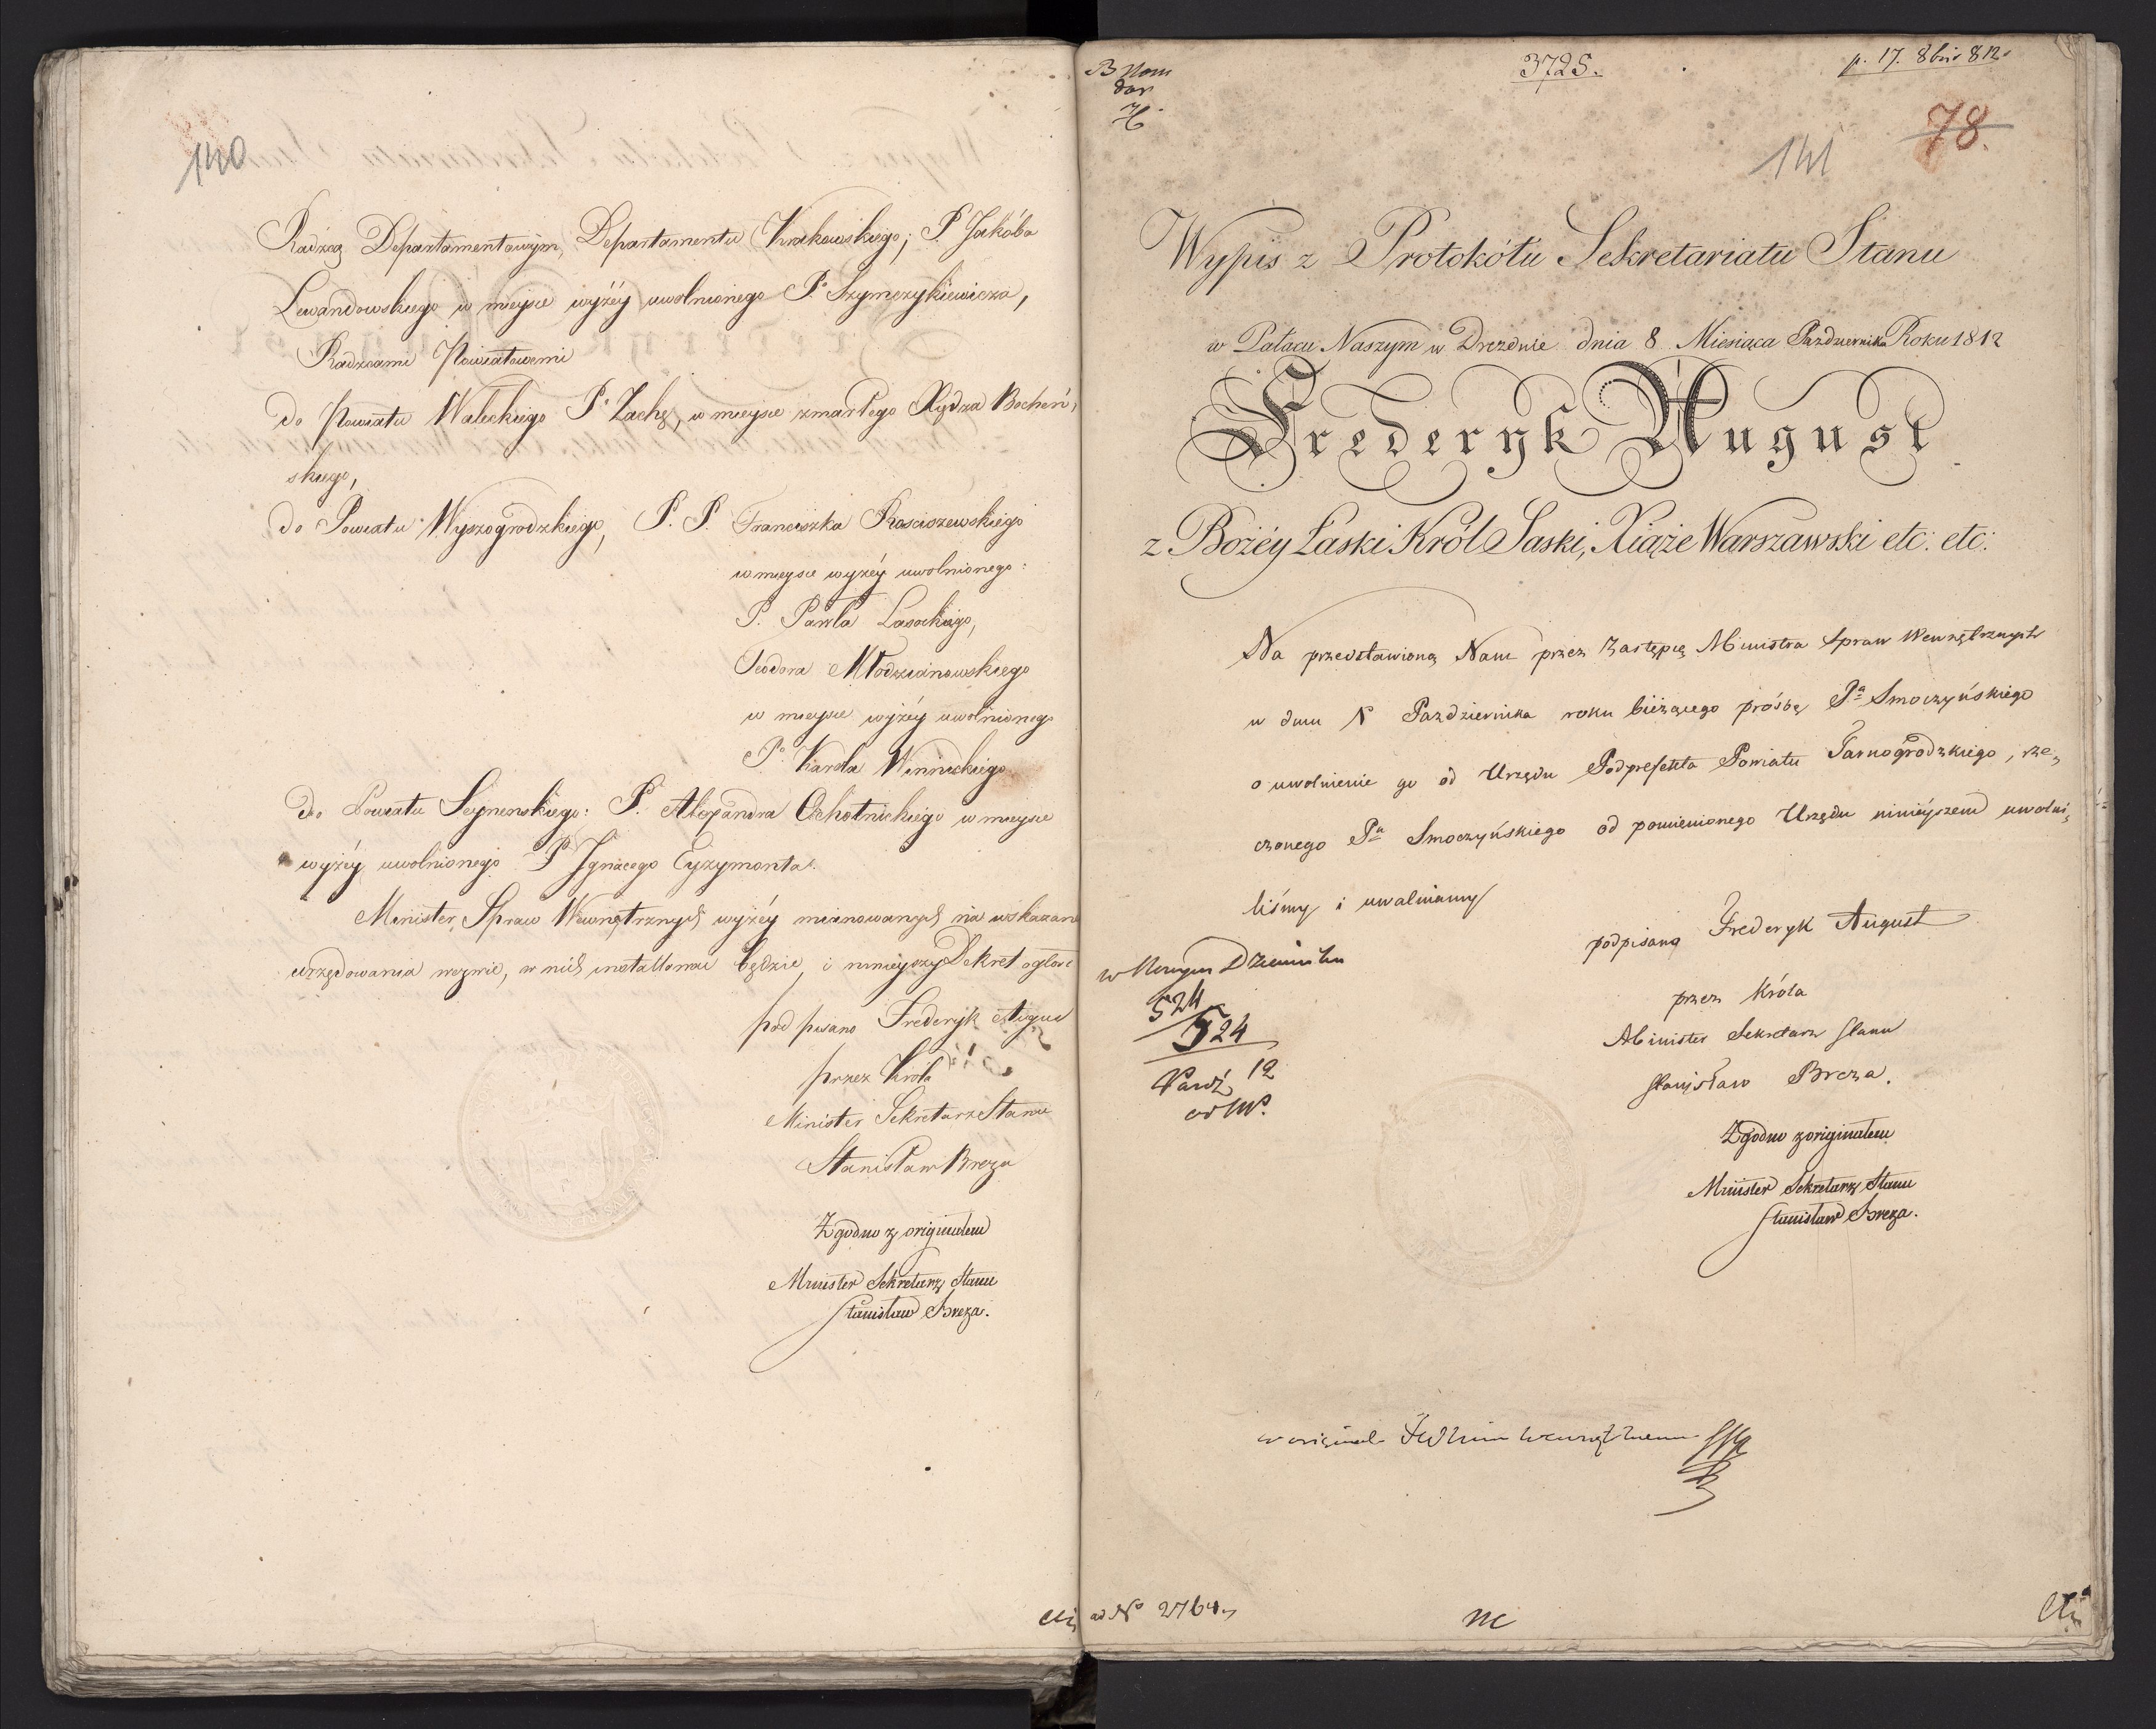 140
Radzcą Departamentowym, Departamentu Krakowskiego; P. Jakóba
Lewandowskiego w mieysce wyżéy uwolnionego P. Szymczykiewicza,
Radzcami Powiatowemi
do Powiatu Waleckiego P. Zachę, w mieysce zmarłego Rydza Bocheń,
skiego,
do Powiatu Wyszogrodzkiego, P. P. Franciszka Rosciszewskiego
w mieysce wyżéy uwolnionego:
P. Pawła Lasockiego,
Teodora Młodzianowskiego
w mieysce wyżéy uwolnionego
P. Karola Winnickiego
do Powiatu Seynenskiego: P. Alexandra Ochotnickiego w mieysce
wyżéy uwolnionego P. Ignacego Eyzymonta.
Minister Spraw Wewnętrznych wyżéy mianowanych na wskazane
urzędowania wezwie, w nich installować będzie, i ninieyszy Dekret ogłosi
podpisano Frederyk Augus
przez Króla
Minister Sekretarz Stanu
Stanisław Breza
Zgodno z originałem
Minister Sekretarz Stanu
Stanisław Breza.
B Nom
3725.
p. 17. 8bris 812.
78.
141
Wypis z Protokółu Sekretariatu Stanu
w Pałacu Naszym w Dreznie dnia 8 Miesiąca Pazdziernika Roku 1812
Frederyk August
z Bożéy Łaski Król Saski, Xiąże Warszawski etc: etc:
Na przedstawioną Nam przez Zastępcę Ministra Spraw Wewnętrznych
w dniu 1 Pazdziernika roku bieżącego prośbę Pa Smoczyńskiego
o uwolnienie go od Urzędu Podprefekta Powiatu Tarnogrodzkiego, rze,
czonego Pa Smoczyńskiego od pomienionego Urzędu ninieyszem uwolni,
liśmy i uwalniamy
podpisano Frederyk August
przez Króla
Minister Sekretarz Stanu
Stanisław Breza.
Zgodno z originałem
Minister Sekretarz Stanu
Stanisław Breza.
w Nowym Dzienniku
524
524
Paźd. 12
w original
ad No 2764